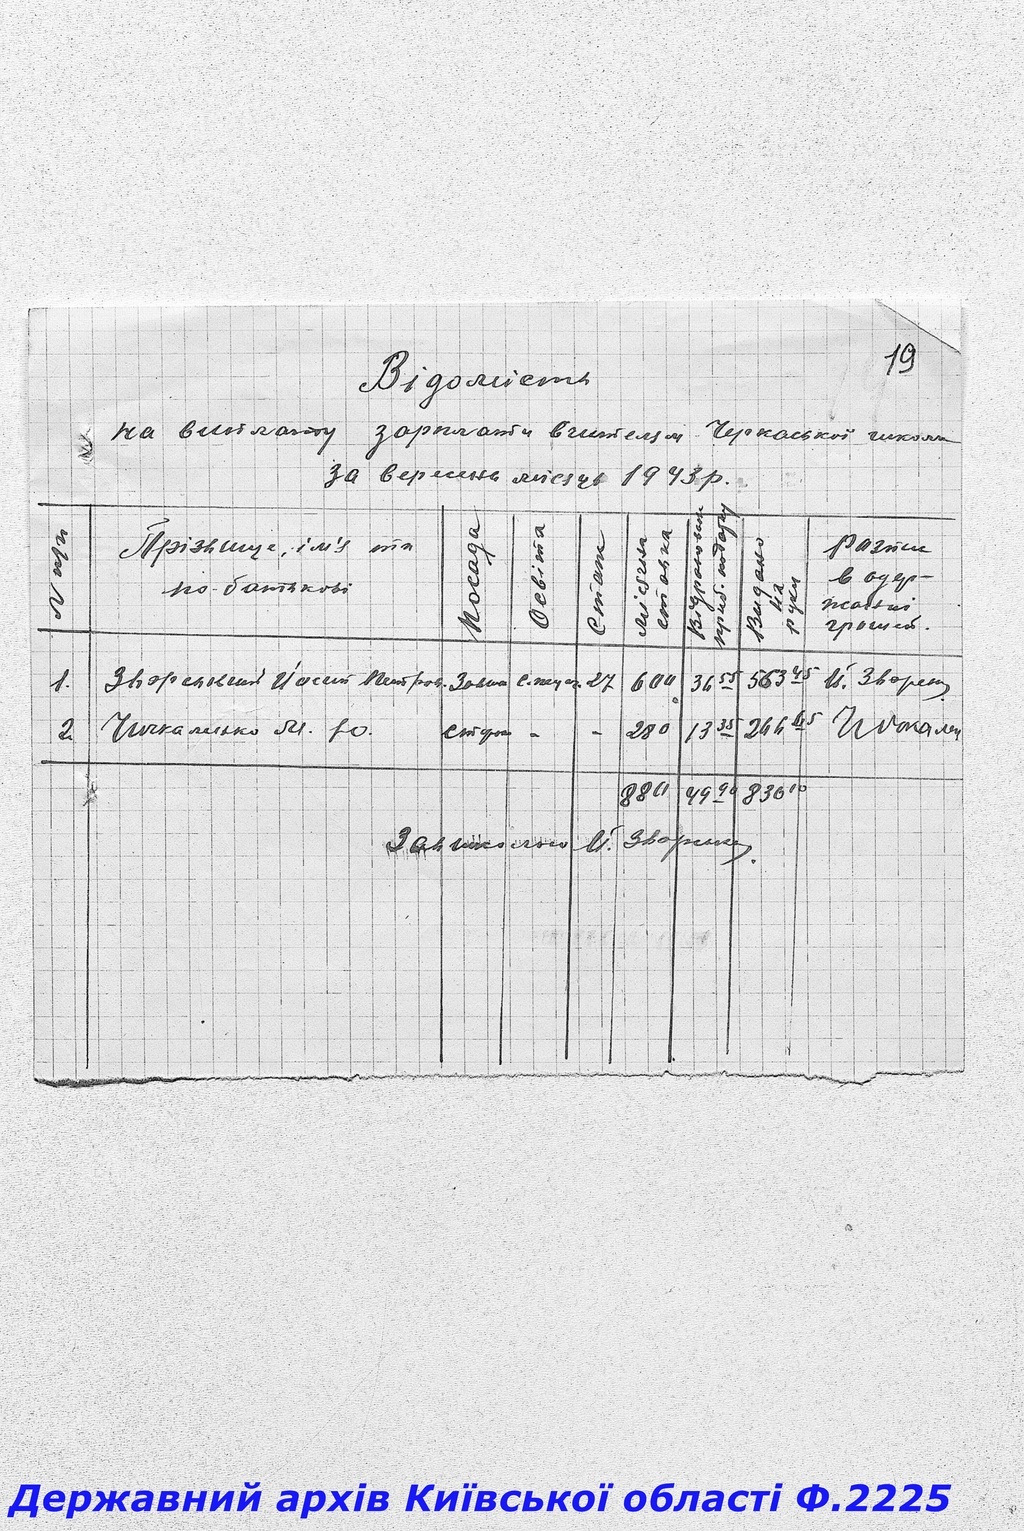 19
Відомість
на виплату зарплати вчителям Черкаської школи
за вересень місяць 1943 р.
N п/п
Прізвище, ім'я та
по-батькові
Посада
Освіта
Стаж
Місячна
ставка
Відраховано
приб. податку
Видано
на
руки
Розпис
в одер-
жанні
грошей.
1. Зворський Йосип Петров. Завш с. пед. 27 600 36 55 563 45 Й. Зворськ
2 Чичкаленко М. Ю. сторож - - 280 13 35 266 65 Чичкален
880 49 90 830 10
Завшколою Й. Зворськ.
Державний архів Київської області Ф.2225